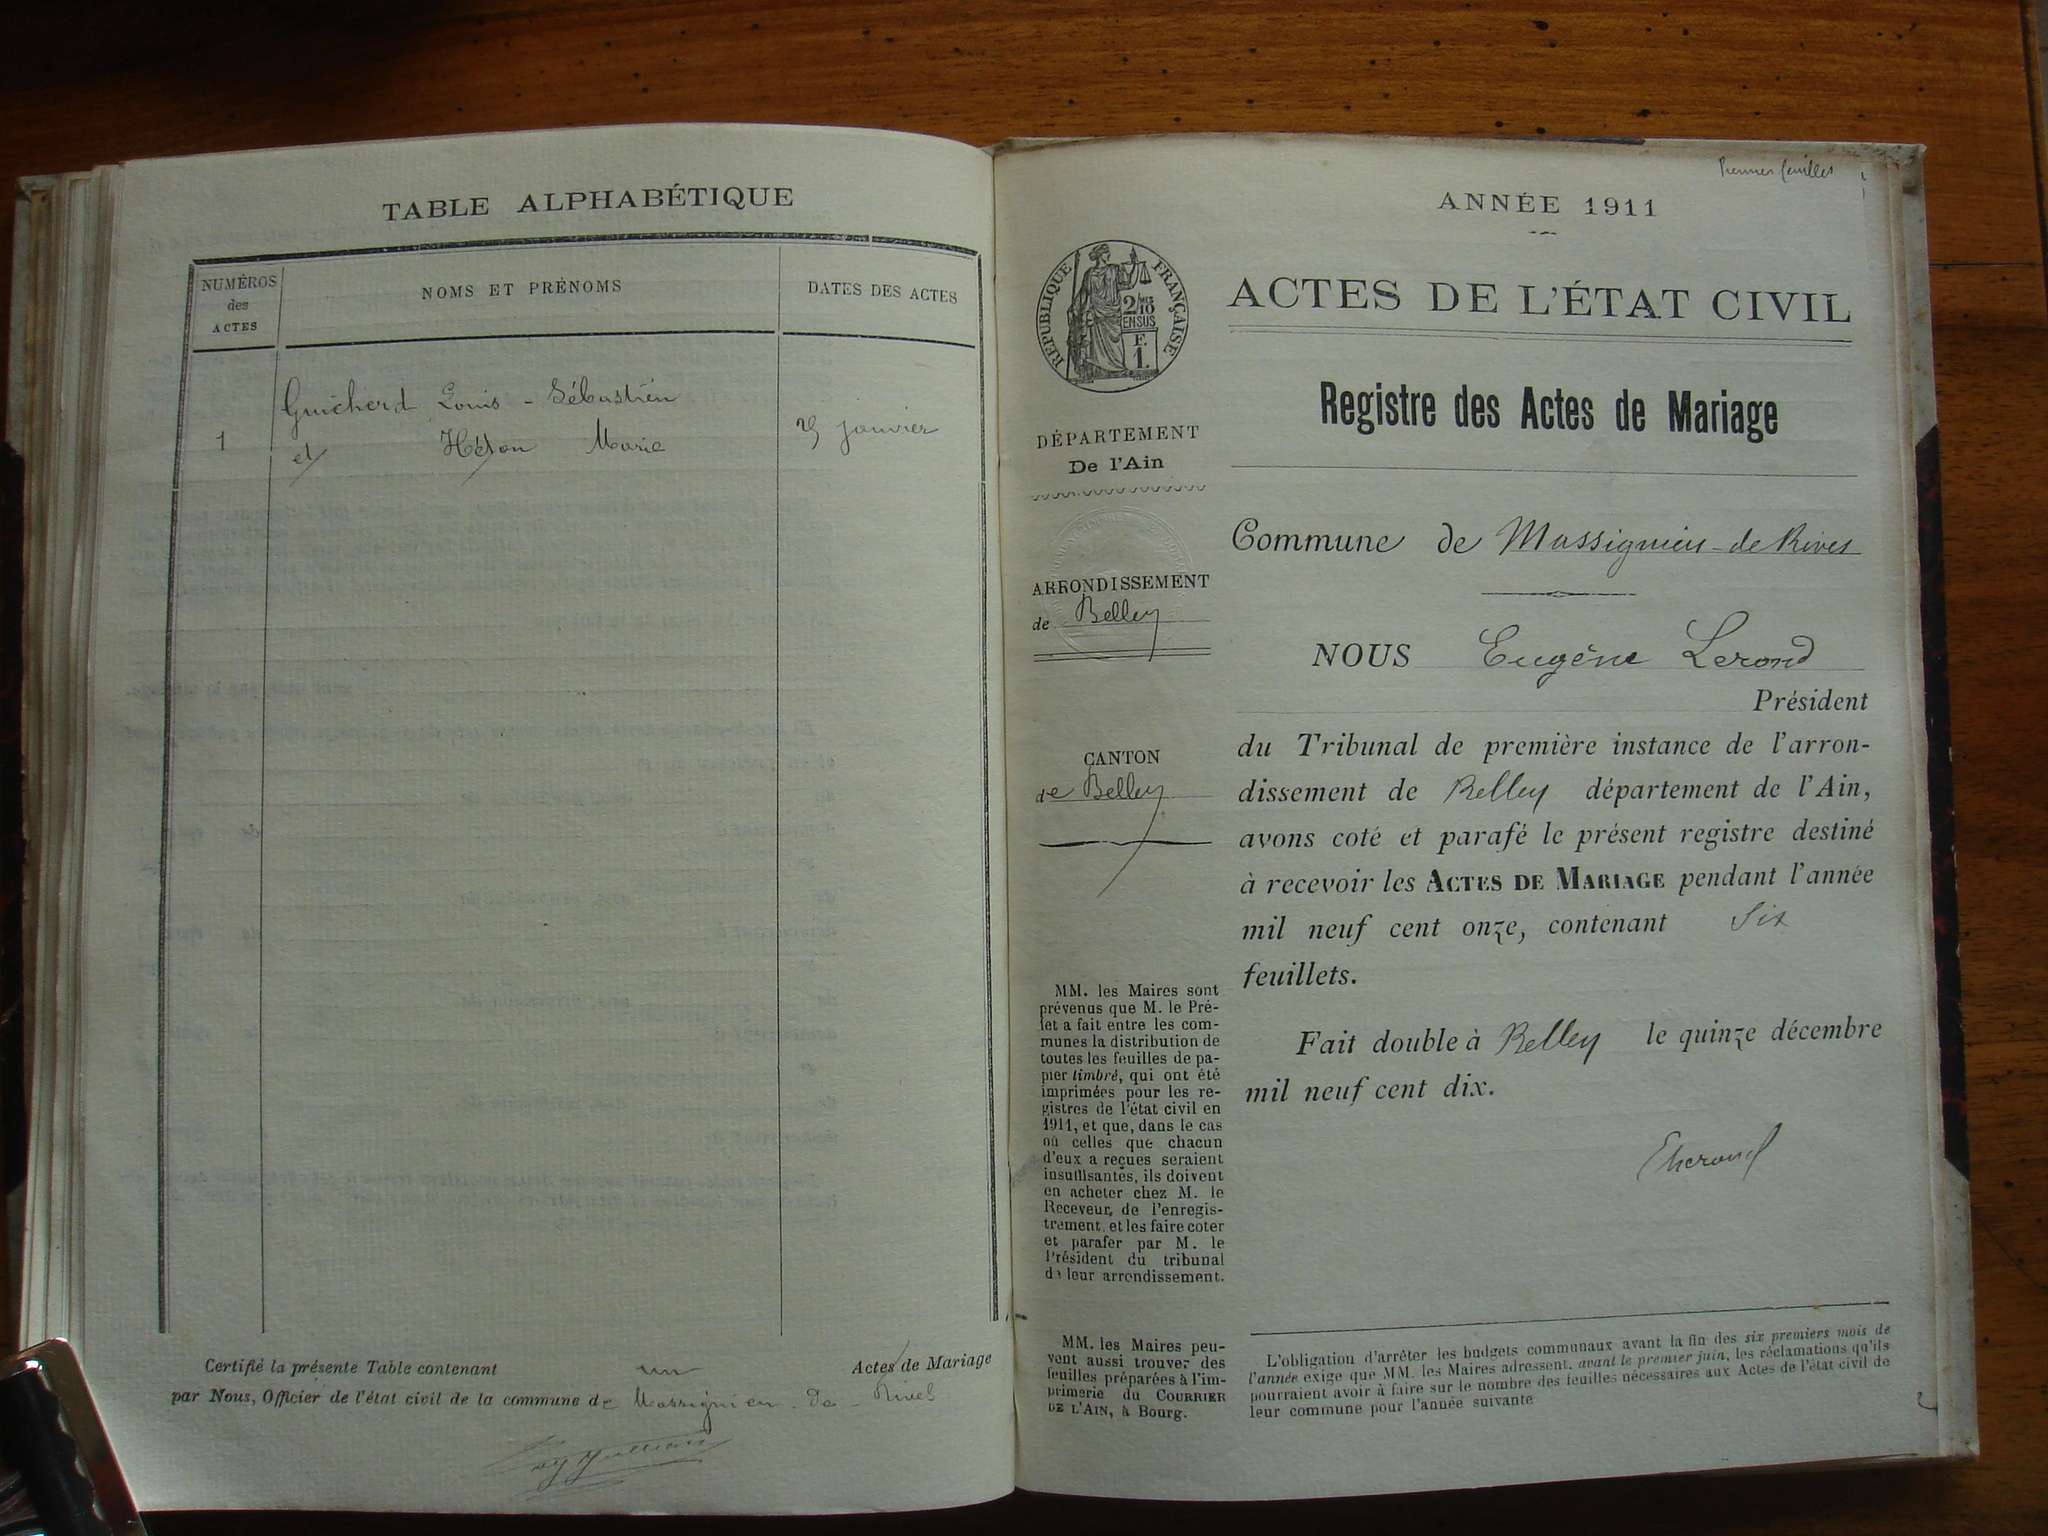 TABLE ALPHABÉTIQUE
NUMÉROS
des
ACTES
NOMS ET PRÉNOMS
DATES DES ACTES
Guicherd Louis - Sébastien
1 et Héton Marie
janvier
Certifié la présente Table contenant un Actes de Mariage
par Nous, Officier de l'état civil de la commune de Massignieu - de - Rives
Premier feuillet
ANNÉE 1911
RÉPUBLIQUE FRANÇAISE
2/10
EN SUS
F.
1.
ACTES DE L'ÉTAT CIVIL
Registre des Actes de Mariage
DÉPARTEMENT
De l'Ain
ARRONDISSEMENT
de Belley
CANTON
de Belley
MM. les Maires sont
prévenus que M. le Pré-
fet a fait entre les com-
munes la distribution de
toutes les feuilles de pa-
pier timbré, qui ont été
imprimées pour les re-
gistres de l'état civil en
1911, et que, dans le cas
où celles que chacun
d'eux a reçues seraient
insuffisantes, ils doivent
en acheter chez M. le
Receveur, de l'enregis-
trement, et les faire coter
et parafer par M. le
Président du tribunal
de leur arrondissement.
MM. les Maires peu-
vent aussi trouver des
feuilles préparées à l'im-
primerie du COURRIER
DE L'AIN, à Bourg.
Commune de Massignieu - de Rives
NOUS Eugène Lerond
Président
du Tribunal de première instance de l'arron-
dissement de Belley département de l'Ain,
avons coté et parafé le présent registre destiné
à recevoir les ACTES DE MARIAGE pendant l'année
mil neuf cent onze, contenant Six
feuillets.
Fait double à Belley le quinze décembre
mil neuf cent dix.
ELerond
L'obligation d'arrêter les budgets communaux avant la fin des six premiers mois de
l'année exige que MM. les Maires adressent, avant le premier juin, les réclamations qu'ils
pourraient avoir à faire sur le nombre des feuilles nécessaires aux Actes de l'état civil de
leur commune pour l'année suivante